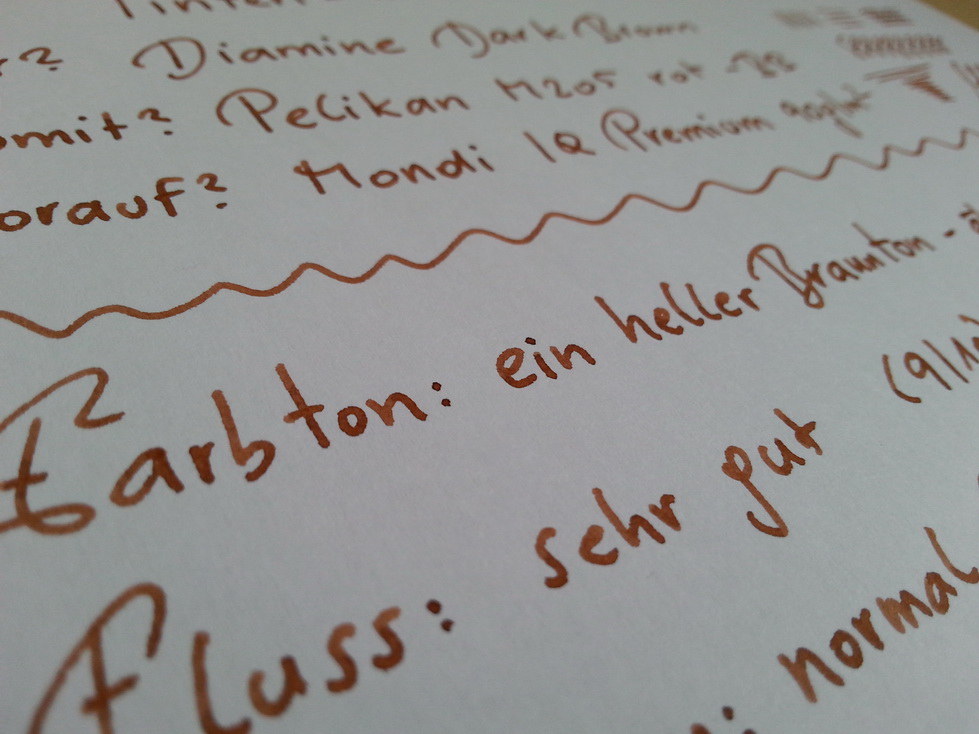 r? Diamine Dark Brown
omit? Pelikan M205 rot - BB
orauf? Mondi IQ Premium 80g/m²
Farbton: ein heller Braunton -
Fluss: sehr gut (9/10
: normal